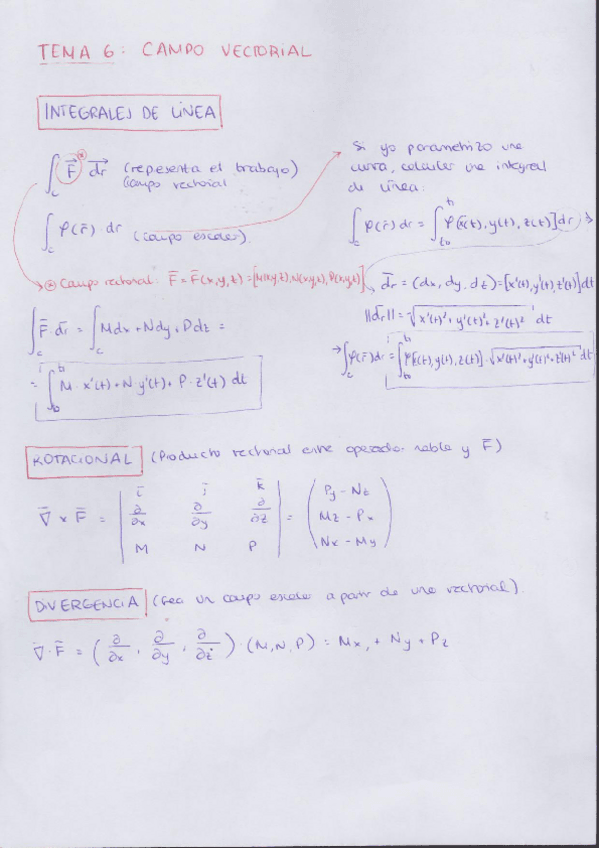 TEMA 6: CAMPO VECTORIAL
INTEGRALES DE LÍNEA
∫_c F⃗ dr⃗ (representa el trabajo)
(campo vectorial
∫_c φ(r̄)·dr (campo escalar)
Si yo parametrizo una
curva, calcular una integral
de línea:
∫_c φ(r̄) dr = ∫ φ[x(t), y(t), z(t)] dr
* Campo vectorial: F̄ = F̄(x,y,z) = [M(x,y,z), N(x,y,z), P(x,y,z)]
d̄r = (dx, dy, dz) = [x'(t), y'(t), z'(t)] dt
||d̄r|| = √(x'(t)²+y'(t)²+z'(t)²) dt
∫_c F̄ d̄r = ∫_c Mdx + Ndy + Pdz =
→ ∫_c φ(r̄) dr = ∫ φ[x(t), y(t), z(t)]·√(x'(t)²+y'(t)²+z'(t)²) dt
= ∫ M·x'(t) + N·y'(t) + P·z'(t) dt
ROTACIONAL (Producto vectorial entre operador nabla y F̄)
∇̄ × F̄ = | ī j̄ k̄ | = ( Py - Nz )
| ∂/∂x ∂/∂y ∂/∂z | ( Mz - Px )
| M N P | ( Nx - My )
DIVERGENCIA (Crea un campo escalar a partir de uno vectorial).
∇̄·F̄ = (∂/∂x, ∂/∂y, ∂/∂z)·(M, N, P) = Mx + Ny + Pz